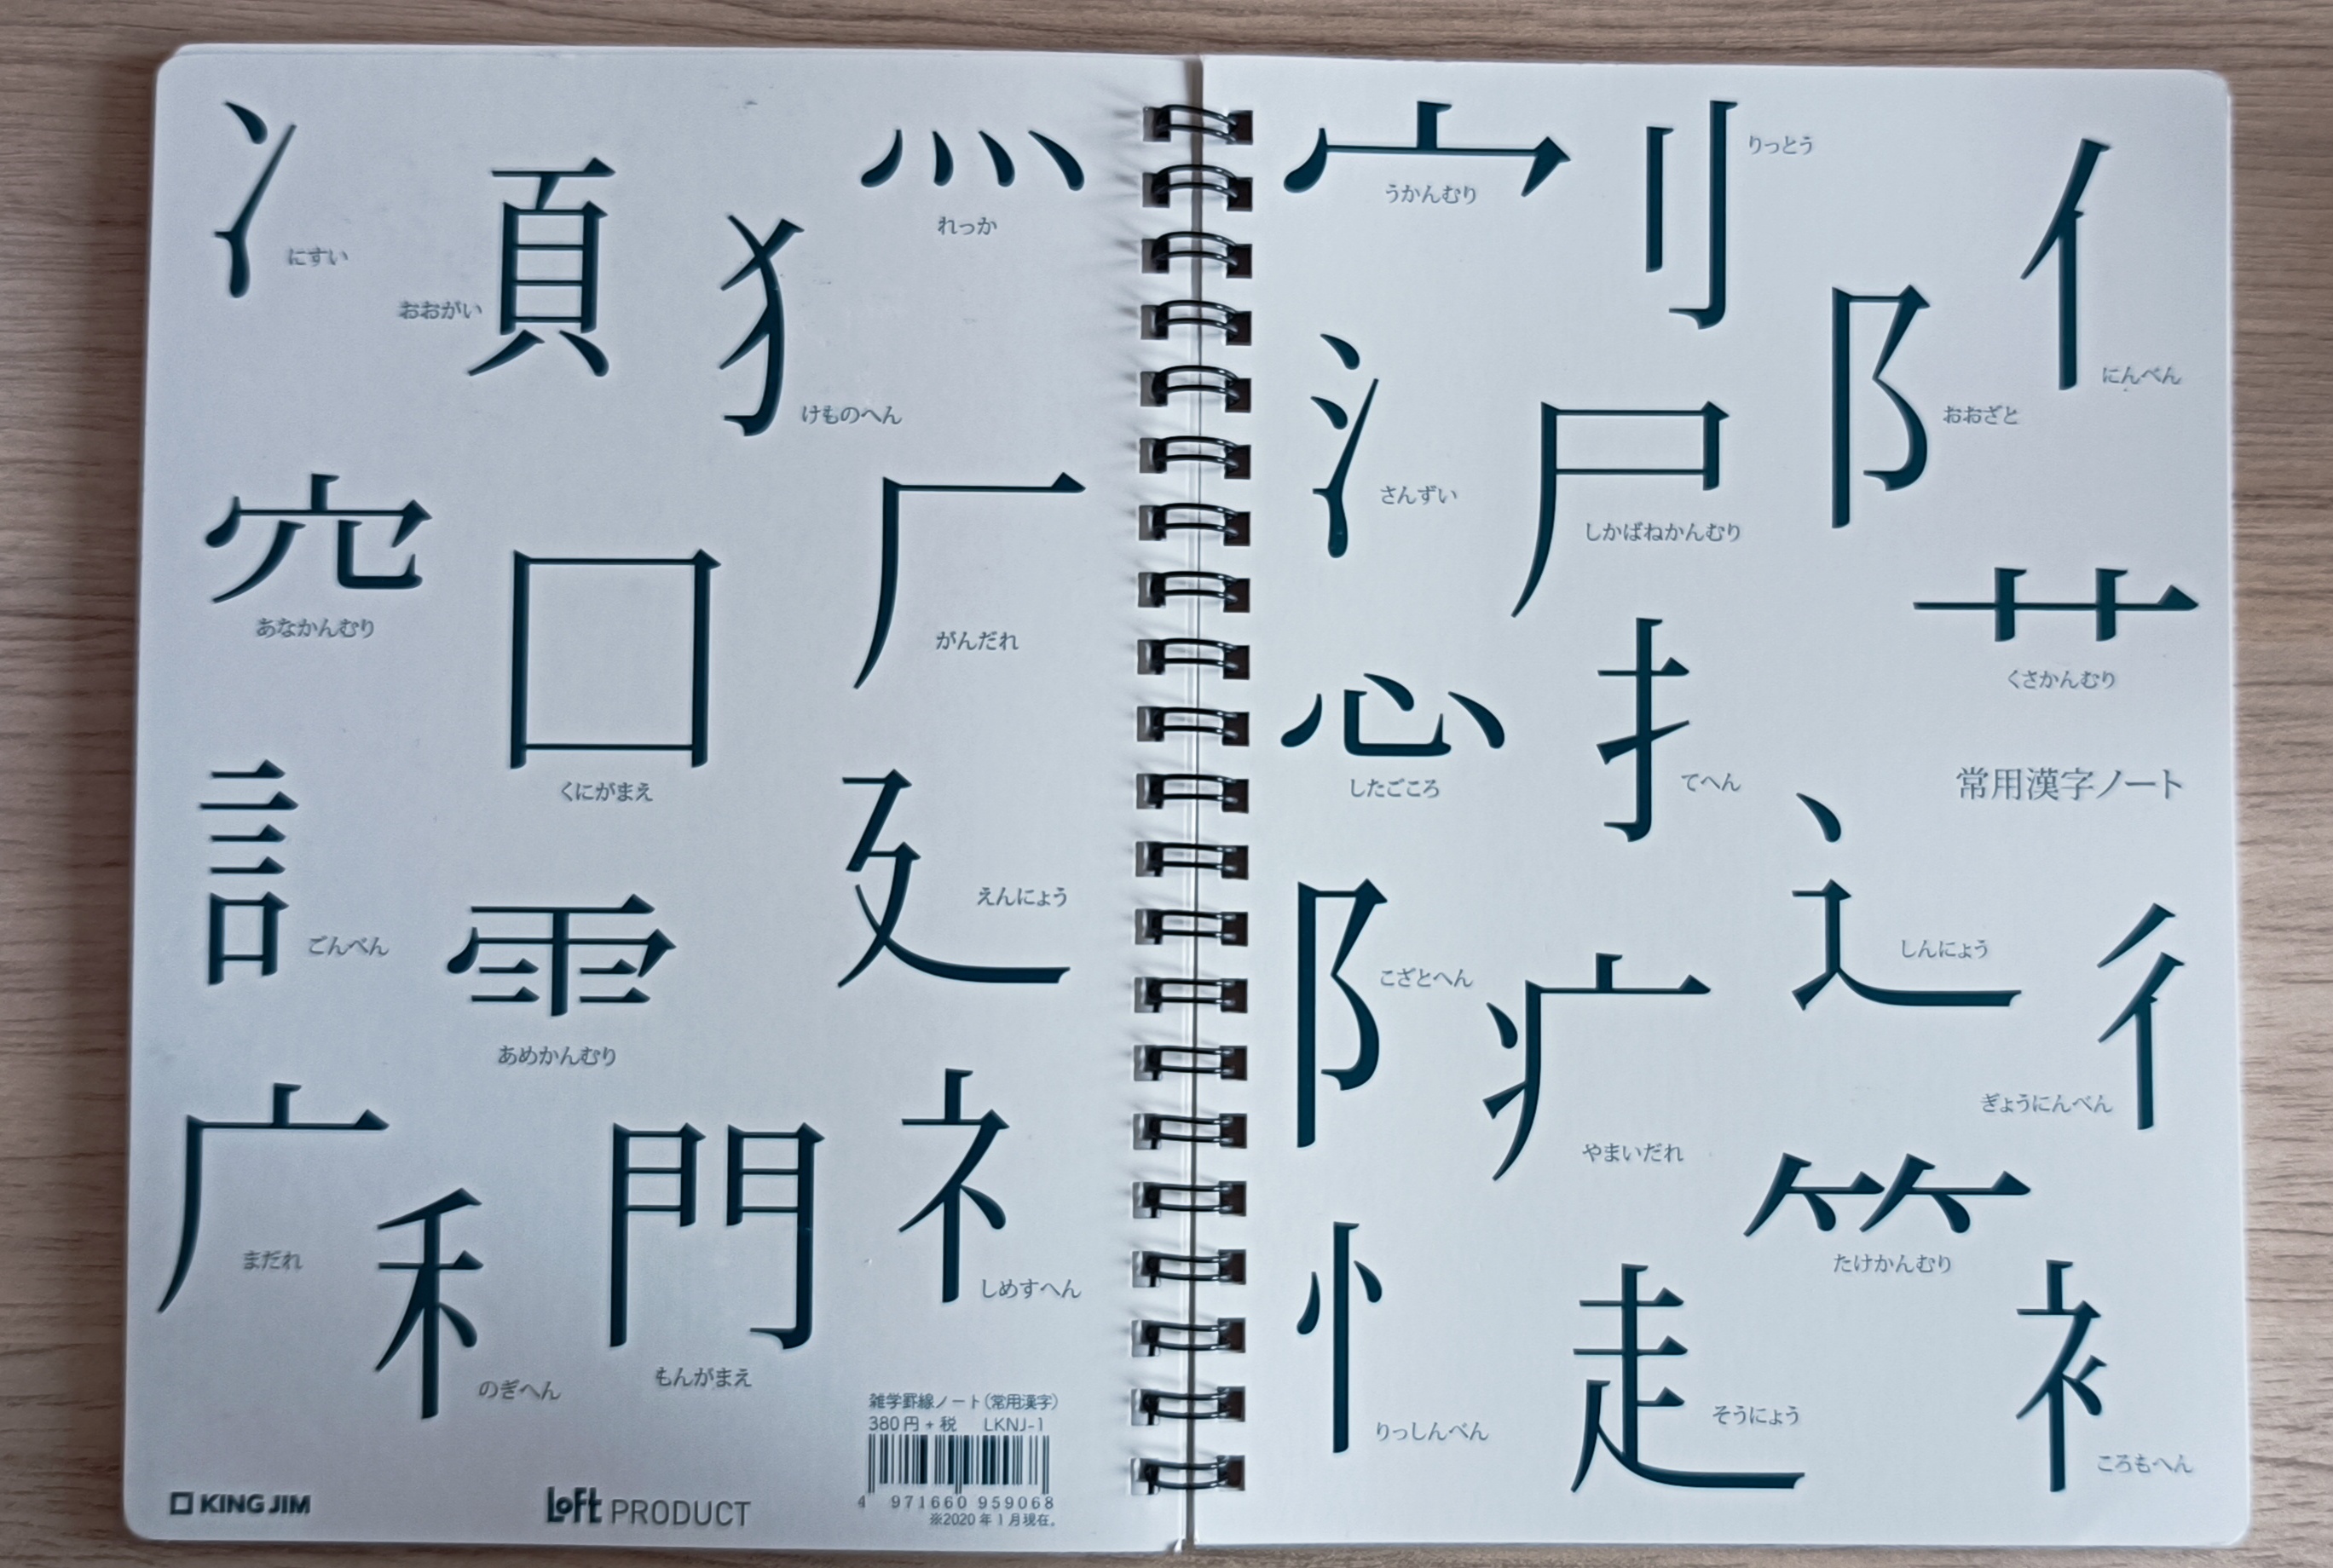 冫
にすい
頁
おおがい
犭
けものへん
灬
れっか
穴
あなかんむり
囗
くにがまえ
厂
がんだれ
訁
ごんべん
⻗
あめかんむり
廴
えんにょう
广
まだれ
禾
のぎへん
門
もんがまえ
礻
しめすへん
雑学罫線ノート(常用漢字)
380円+税 LKNJ-1
4 971660 959068
※2020年1月現在。
KING JIM
LoFt PRODUCT
宀
うかんむり
刂
りっとう
亻
にんべん
阝
おおざと
氵
さんずい
尸
しかばねかんむり
艹
くさかんむり
心
したごころ
扌
てへん
常用漢字ノート
辶
しんにょう
阝
こざとへん
疒
やまいだれ
彳
ぎょうにんべん
⺮
たけかんむり
忄
りっしんべん
走
そうにょう
衤
ころもへん